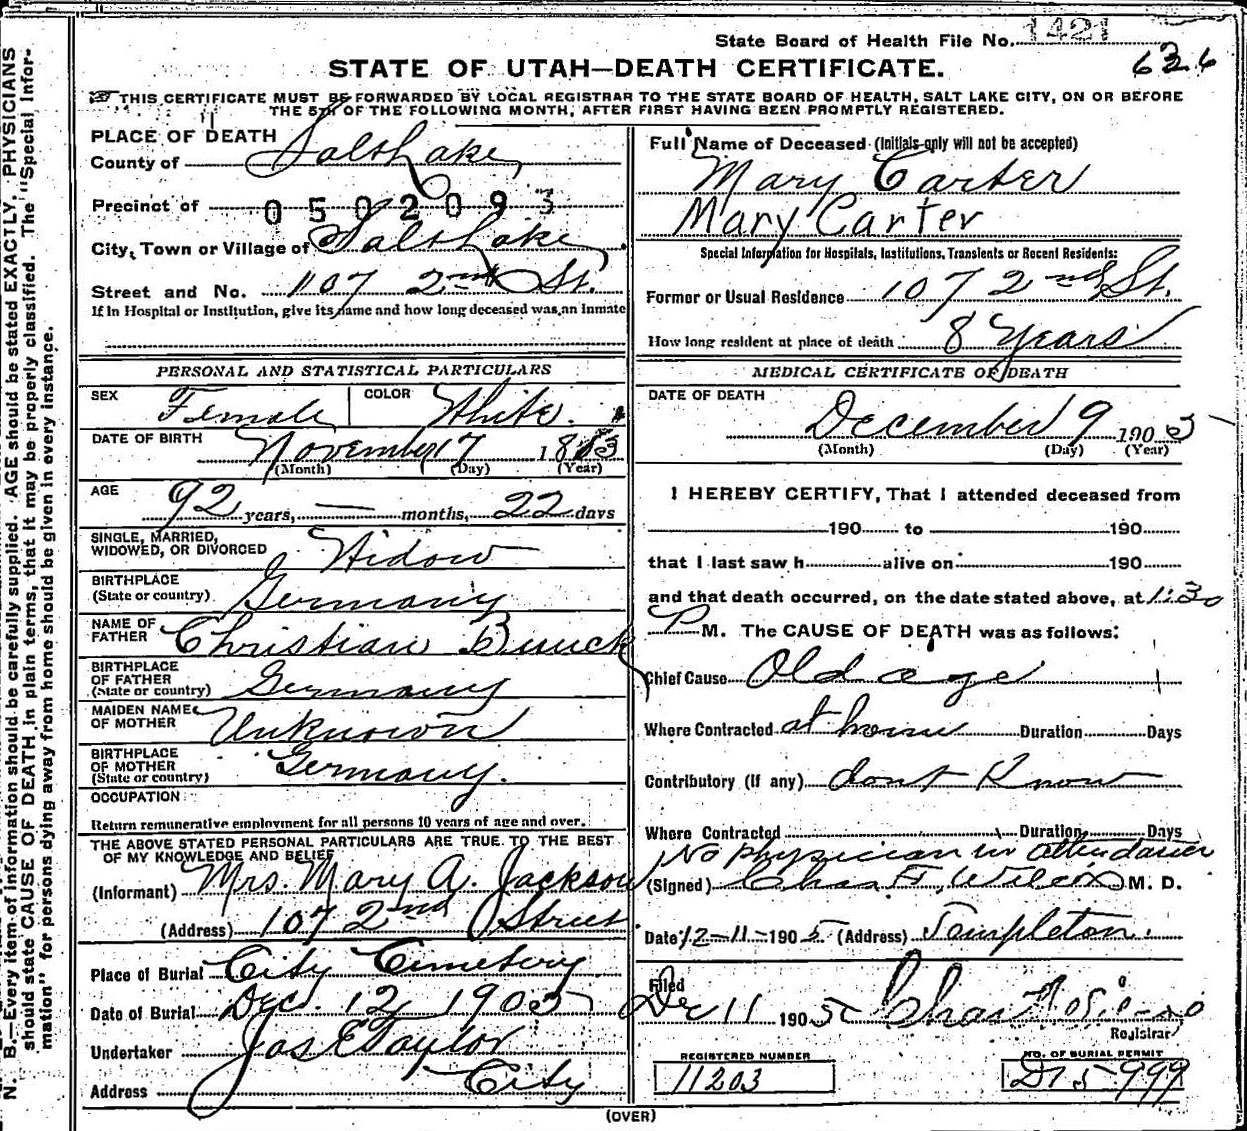 State Board of Health File No. 1421
626
STATE OF UTAH—DEATH CERTIFICATE.
THIS CERTIFICATE MUST BE FORWARDED BY LOCAL REGISTRAR TO THE STATE BOARD OF HEALTH, SALT LAKE CITY, ON OR BEFORE
THE 5TH OF THE FOLLOWING MONTH, AFTER FIRST HAVING BEEN PROMPTLY REGISTERED.
N. B.—Every item of information should be carefully supplied. AGE should be stated EXACTLY. PHYSICIANS
should state CAUSE OF DEATH in plain terms, that it may be properly classified. The "Special Infor-
mation" for persons dying away from home should be given in every instance.
PLACE OF DEATH
County of Salt Lake
Precinct of 0 5 0 2 0 9 3
City, Town or Village of Salt Lake
Street and No. 107 2nd St.
If in Hospital or Institution, give its name and how long deceased was an inmate
PERSONAL AND STATISTICAL PARTICULARS
SEX Female COLOR White.
DATE OF BIRTH November 17 1813
(Month) (Day) (Year)
AGE 92 years, — months, 22 days
SINGLE, MARRIED,
WIDOWED, OR DIVORCED Widow
BIRTHPLACE
(State or country) Germany
NAME OF
FATHER Christian
BIRTHPLACE
OF FATHER
(State or country) Germany
MAIDEN NAME
OF MOTHER Unknown
BIRTHPLACE
OF MOTHER
(State or country) Germany.
OCCUPATION
Return remunerative employment for all persons 10 years of age and over.
THE ABOVE STATED PERSONAL PARTICULARS ARE TRUE TO THE BEST
OF MY KNOWLEDGE AND BELIEF
(Informant) Mrs. Mary A. Jackson
(Address) 107 2nd Street
Place of Burial City Cemetery
Date of Burial Dec. 12 1905
Undertaker Jas E Taylor
Address City
Full Name of Deceased (Initials only will not be accepted)
Mary Carter
Mary Carter
Special Information for Hospitals, Institutions, Transients or Recent Residents:
Former or Usual Residence 107 2nd St.
How long resident at place of death 8 Years
MEDICAL CERTIFICATE OF DEATH
DATE OF DEATH
December 9 1905
(Month) (Day) (Year)
I HEREBY CERTIFY, That I attended deceased from
190 to 190
that I last saw h alive on 190
and that death occurred, on the date stated above, at 1:30
P M. The CAUSE OF DEATH was as follows:
Chief Cause Old age
Where Contracted at home Duration Days
Contributory (if any) dont Know
Where Contracted Duration Days
No physician in attendance
(Signed) Chas F. Wilcox M. D.
Date 12-11-1905 (Address) Templeton.
Filed
Dec 11 1905 Chas
Registrar
REGISTERED NUMBER
11203
NO. OF BURIAL PERMIT
D15999
(OVER)